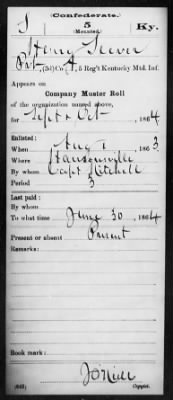 Confederate.
5
(Mounted.)
Ky.
Henry
Pvt., (3d) Co. A, 5 Reg't Kentucky Mtd. Inf.
Appears on
Company Muster Roll
of the organization named above,
for Sept & Oct, 1864
Enlisted:
When Aug 1, 1863
Where Hansonville
By whom Capt Mitchell
Period 3
Last paid:
By whom
To what time June 30, 1864
Present or absent Present
Remarks:
Book mark:
(642)
Copyist.